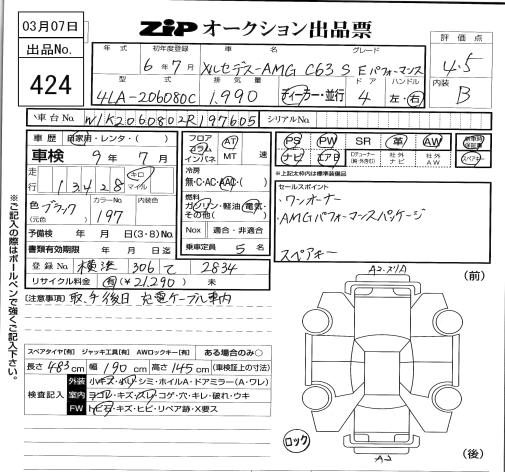 03月07日
ZIP オークション出品票
出品No.
424
年式 初年度登録 車名 グレード
6年7月 メルセデス-AMG C63 S E パフォーマンス
評価点
4.5
型式 排気量 ドア ハンドル
4LA-206080C 1,990 ディーラー・並行 4 左・右
内装
B
車台No. W1K2060802R197605 シリアルNo.
車歴 自家用・レンタ・( )
車検 9年 7月
走行 13428 キロ マイル
色 (元色) ブラック カラーNo. 197 内装色
予備検 年 月 日(3・8)No.
書類有効期限 年 月 日迄
フロア コラム インパネ AT MT 速
冷房 無・C・AC・AAC・( )
燃料 ガソリン・軽油・電気・その他( )
Nox 適合・非適合
乗車定員 5 名
PS PW SR 革 AW
ナビ エアB 社外ナビ 社外AW スペアキー
※上記太枠内は標準装備品
セールスポイント
・ワンオーナー
・AMGパフォーマンスパッケージ
スペアキー
登録No. 横浜 306 て 2834
リサイクル料金 有(¥21,290) 未
[注意事項] 取、予後日 充電ケーブル車内
※ご記入の際はボールペンで強くご記入下さい。
スペアタイヤ[有] ジャッキ工具[有] AWロックキー[有] ある場合のみ○
長さ 483cm 幅 190cm 高さ 145cm (車検証上の寸法)
検査記入
外装 小キズ・小ヘコ・シミ・ホイルA・ドアミラー(A・ワレ)
室内 ヨゴレ・キズ・スレ・コゲ・穴・キレ・破れ・ウキ
FW トビ石・キズ・ヒビ・リペア跡・X要ス
(前)
ロック
(後)